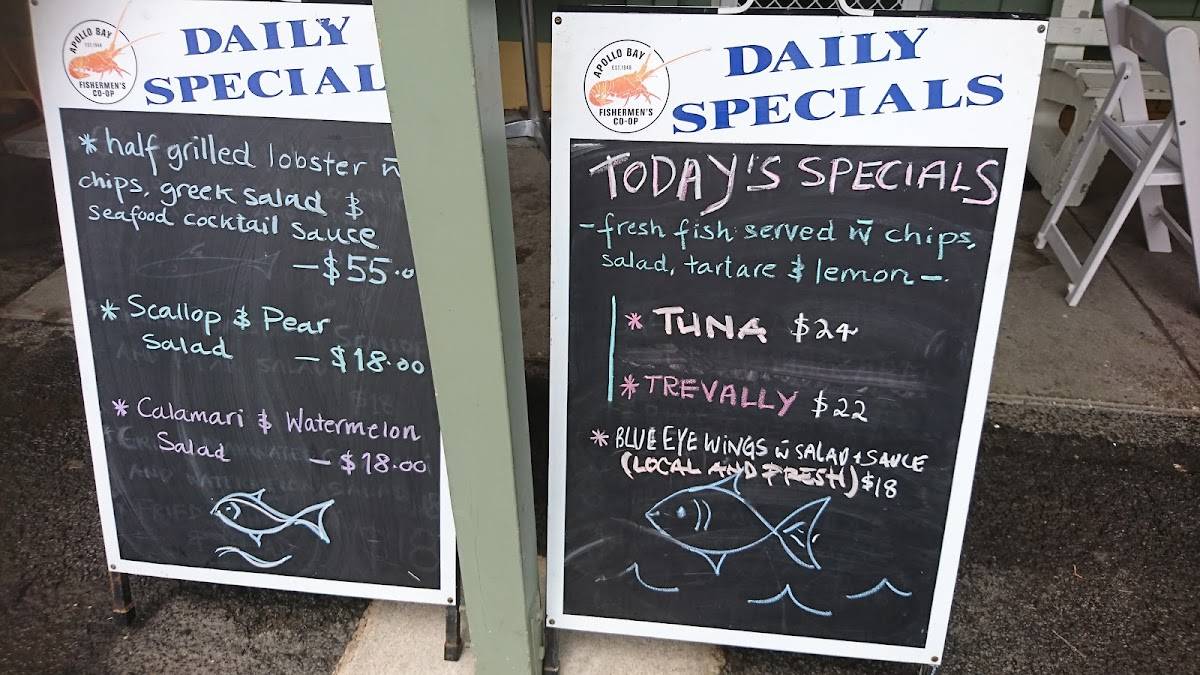 APOLLO BAY
EST.1948
FISHERMEN'S
CO-OP
DAILY
SPECIAL
* half grilled lobster w̄
chips, greek salad &
seafood cocktail sauce
- $55.0
* Scallop & Pear
Salad - $18.00
* Calamari & Watermelon
Salad - $18.00
APOLLO BAY
EST.1948
FISHERMEN'S
CO-OP
DAILY
SPECIALS
TODAY'S SPECIALS
- fresh fish served w̄ chips,
salad, tartare & lemon -.
* TUNA $24
* TREVALLY $22
* BLUE EYE WINGS w̄ SALAD + SAUCE
(LOCAL AND FRESH) $18